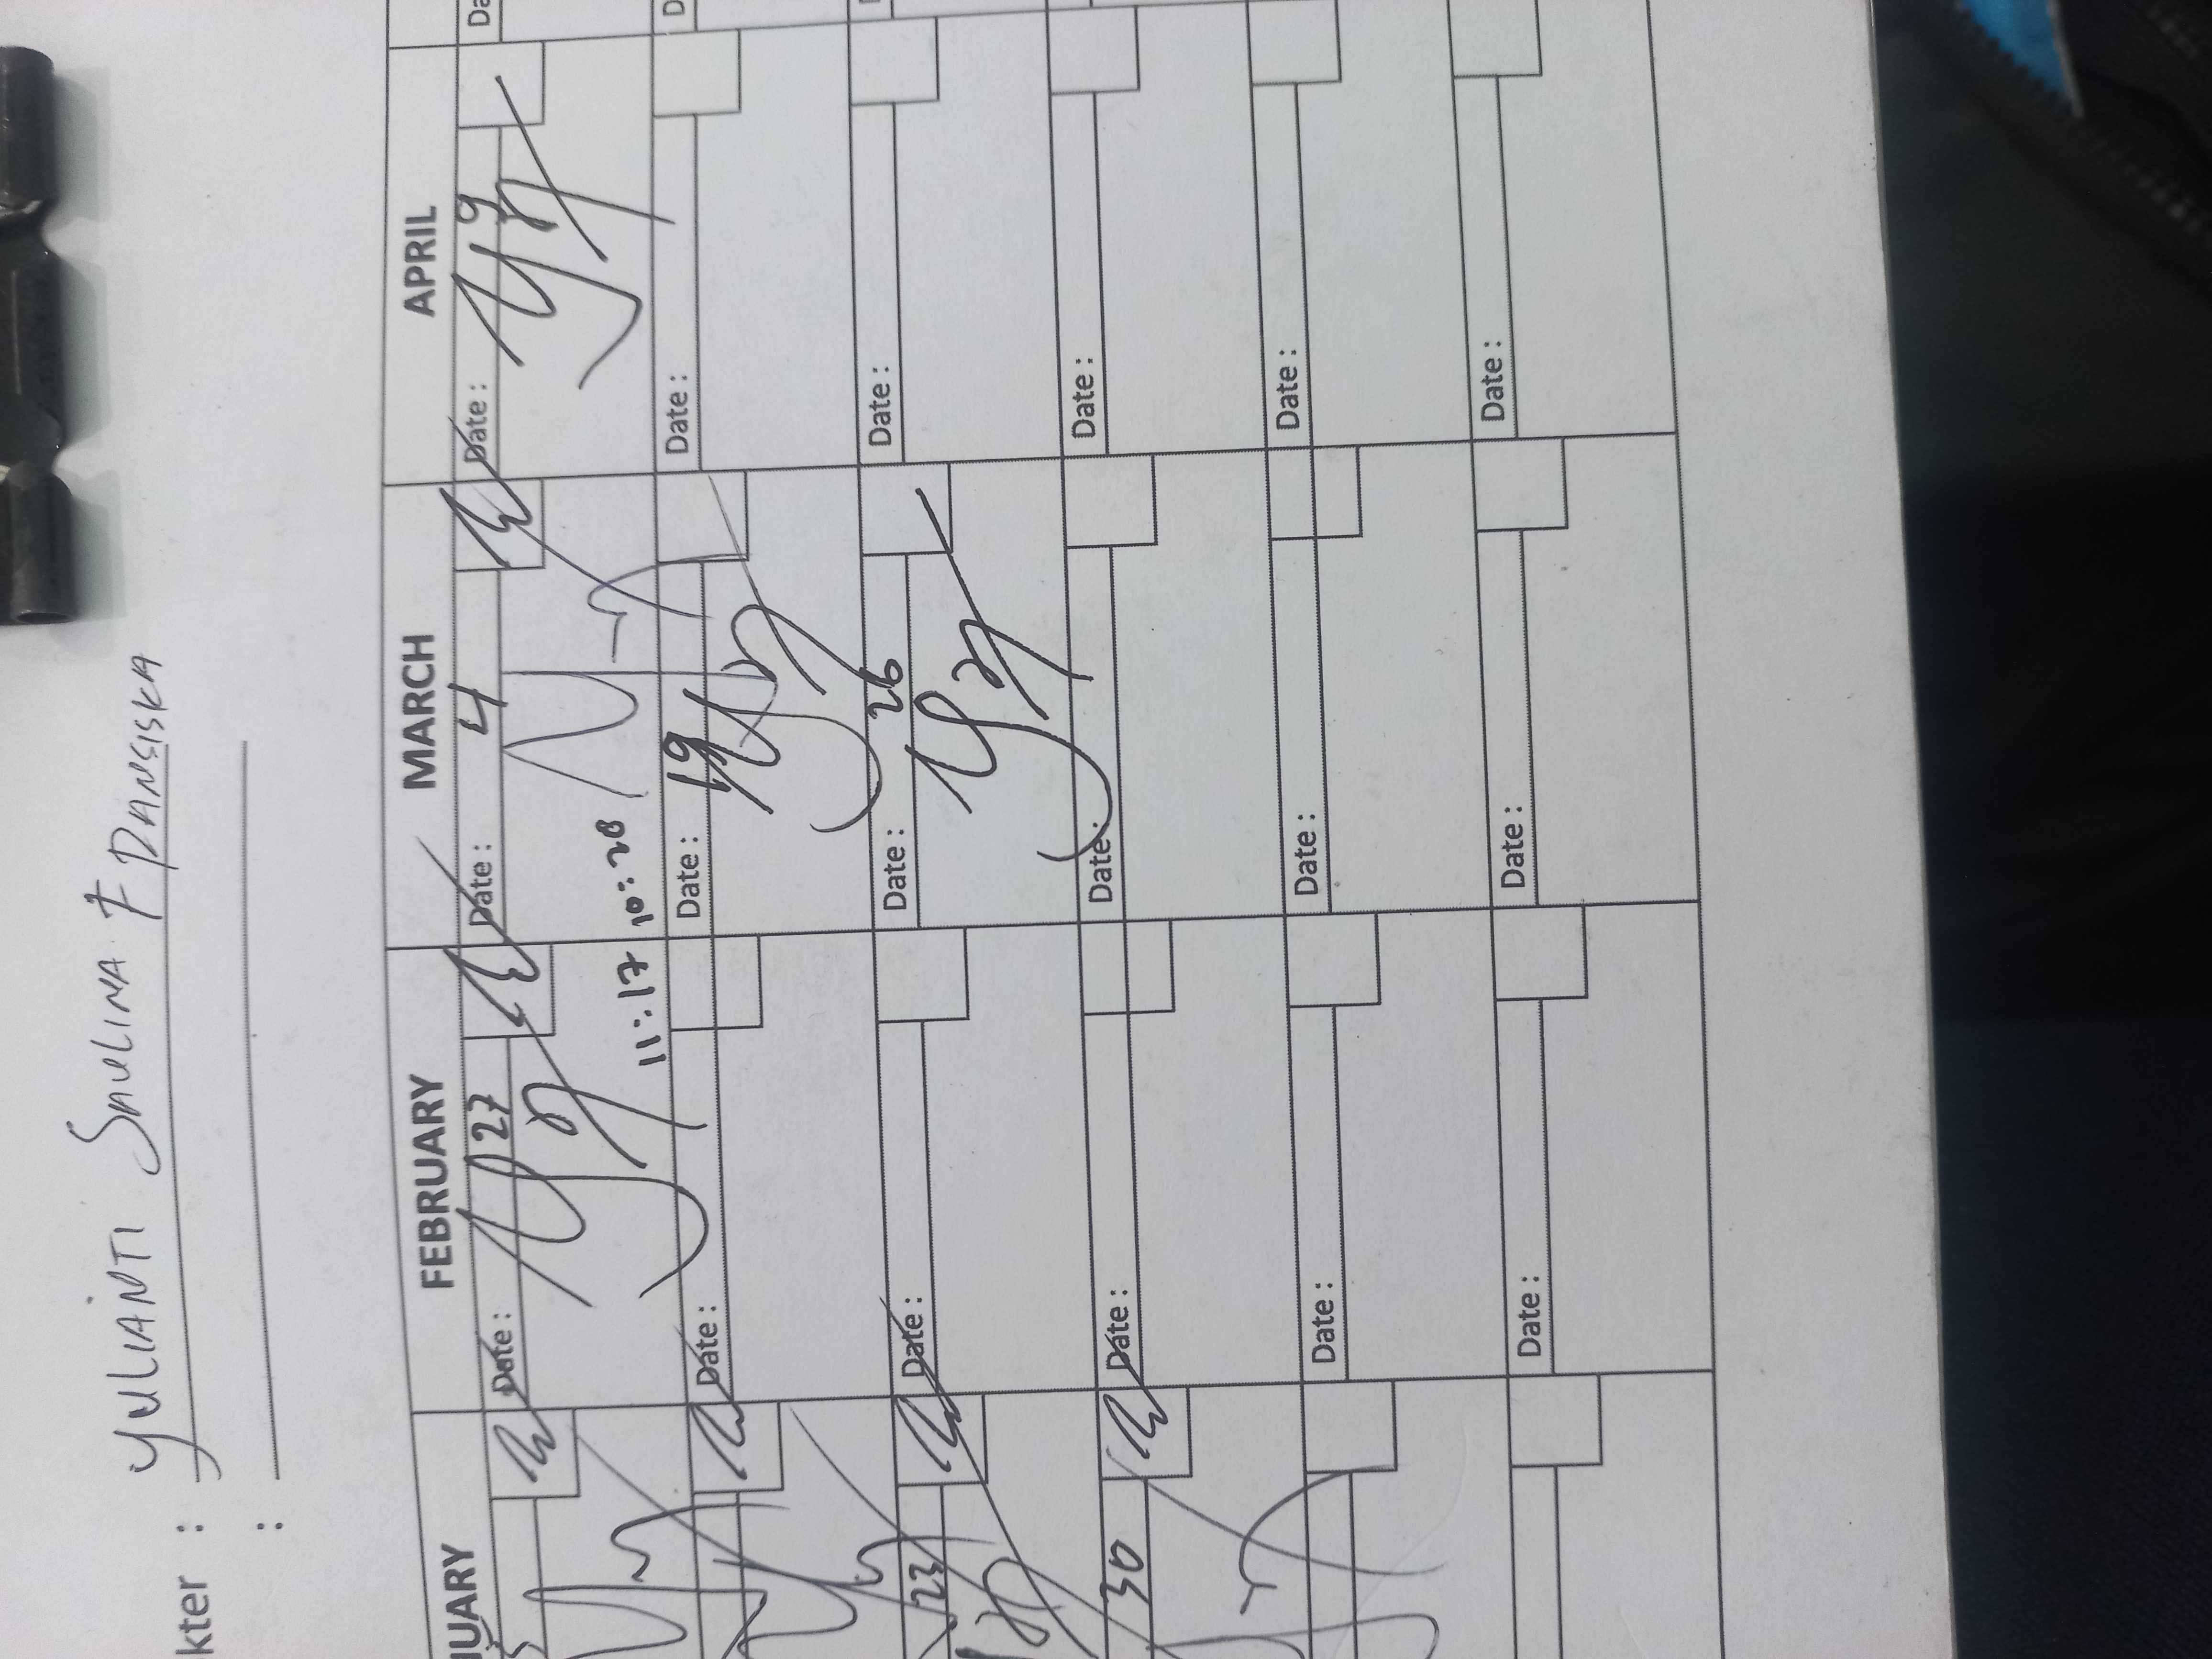 kter : YULIANTI SAULINA F PANSISKA
:
UARY FEBRUARY MARCH APRIL
Date : 27 Date : 4 Date : 9 Da
11:17 10:28
Date : Date : 19 Date : D
23 Date : Date : 26 Date :
30 Date : Date : Date :
Date : Date : Date :
Date : Date : Date :